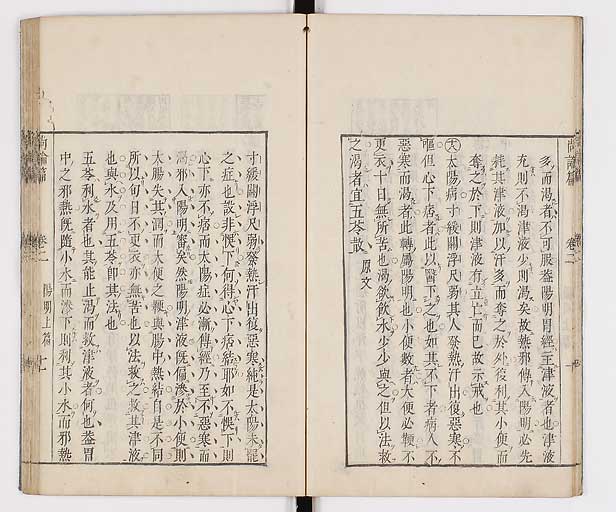 多而渴者不可服蓋陽明胃經主津液者也津液
充則不渴津液少則渴矣故熱邪傳入陽明必先
耗其津液加以汗多而奪之於外復利其小便而
奪之於下則津液有立亡而已故示戒也
太陽病寸緩關浮尺弱其人發熱汗出復惡寒不
嘔但心下痞者此以醫下之也如其不下者病人不
惡寒而渴者此轉屬陽明也小便數者大便必鞕不
更衣十日無所苦也渴欲飲水少少與之但以法救
之渴者宜五苓散 原文
尚論篇 卷二
寸緩關浮尺弱發熱汗出復惡寒純是太陽未罷
之症也設非悞下何得心下痞結耶如不悞下則
心下亦不痞而太陽症必漸傳經乃至不惡寒而
渴邪入陽明審矣然陽明津液既偏滲於小便則
大腸失其潤而大便之鞕與腸中熱結自是不同
所以旬日不更衣亦無苦也以法救之救其津液
也與水及用五苓即其法也
五苓利水者也其能止渴而救津液者何也蓋胃
中之邪熱既隨小水而滲下則利其小水而邪熱
尚論篇 卷二 陽明上篇 十一